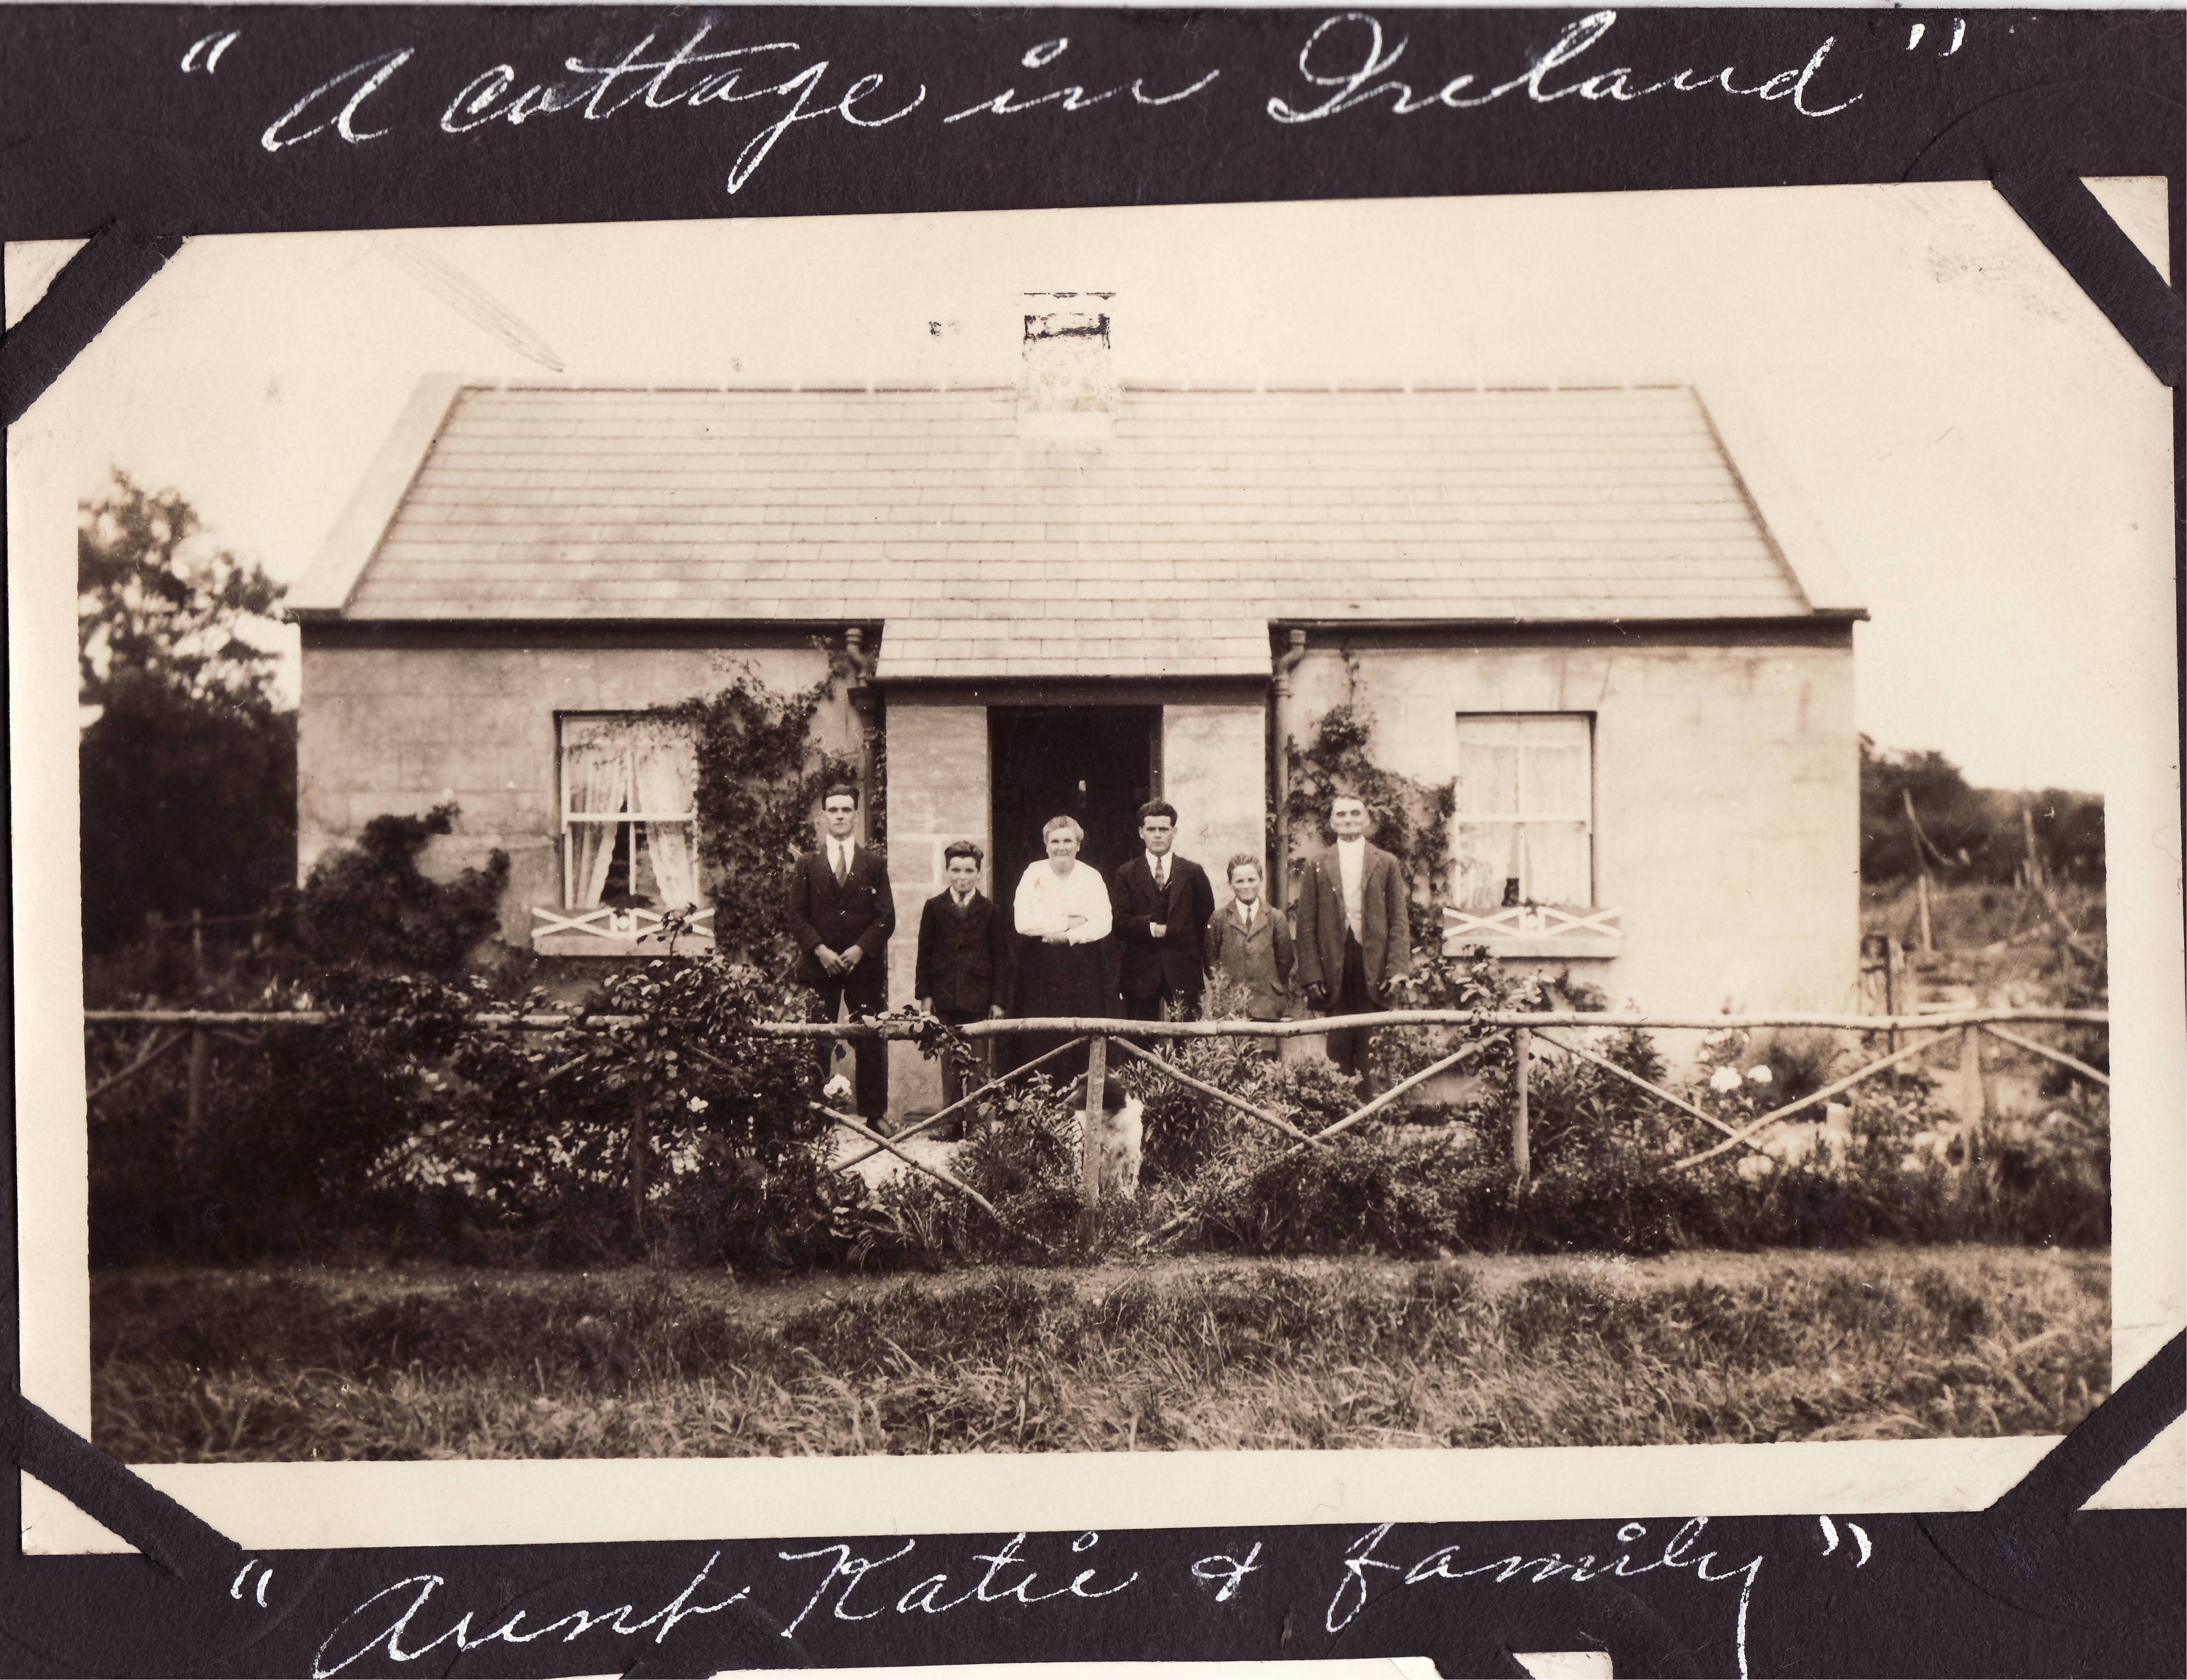 "A cottage in Ireland"
"Aunt Katie & family"